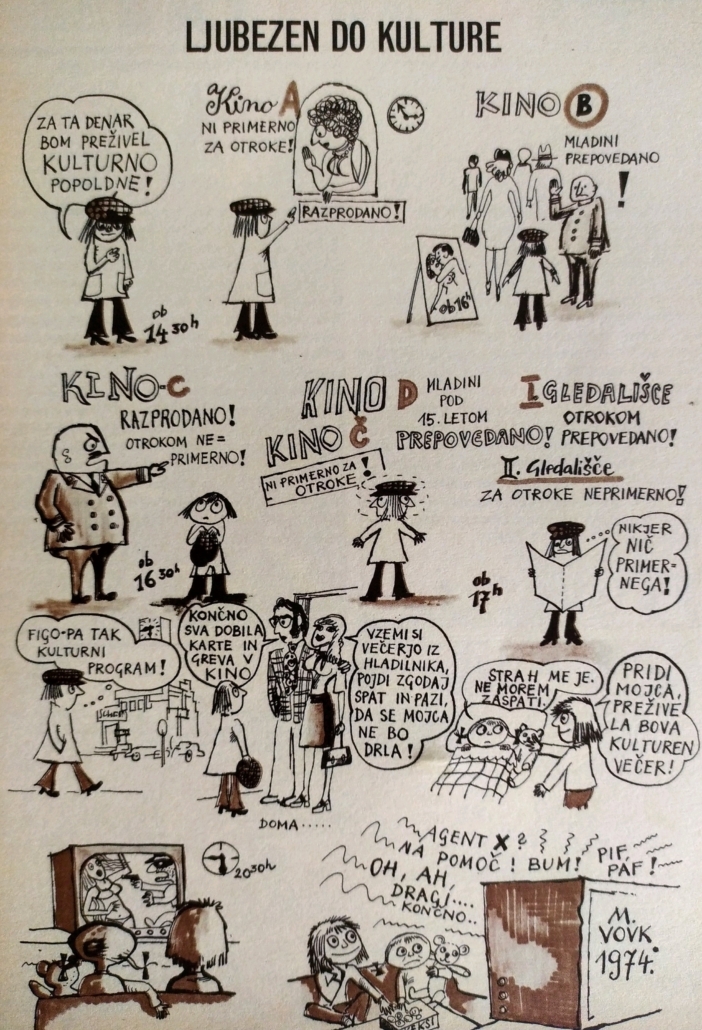 LJUBEZEN DO KULTURE
ZA TA DENAR
BOM PREŽIVEL
KULTURNO
POPOLDNE!
ob
14 30h
Kino A
NI PRIMERNO
ZA OTROKE!
RAZPRODANO!
KINO B
MLADINI
PREPOVEDANO
!
ob 16h
KINO-C
RAZPRODANO!
OTROKOM NE=
PRIMERNO!
ob
16 30h
KINO Č
NI PRIMERNO ZA
OTROKE!
KINO D
MLADINI
POD
15. LETOM
PREPOVEDANO!
I GLEDALIŠČE
OTROKOM
PREPOVEDANO!
II. Gledališče
ZA OTROKE NEPRIMERNO!
ob
17h
NIKJER
NIČ
PRIMER-
NEGA!
FIGO-PA TAK
KULTURNI
PROGRAM!
KONČNO
SVA DOBILA
KARTE IN
GREVA V
KINO
VZEMI SI
VEČERJO IZ
HLADILNIKA,
POJDI ZGODAJ
SPAT IN PAZI,
DA SE MOJCA
NE BO
DRLA!
STRAH ME JE.
NE MOREM
ZASPATI.
PRIDI
MOJCA,
PREŽIVE
LA BOVA
KULTUREN
VEČER!
DOMA.....
20 30h
AGENT X?
NA POMOČ! BUM!
PIF
PAF!
OH, AH,
DRAGI....
KONČNO..
M.
VOVK
1974.